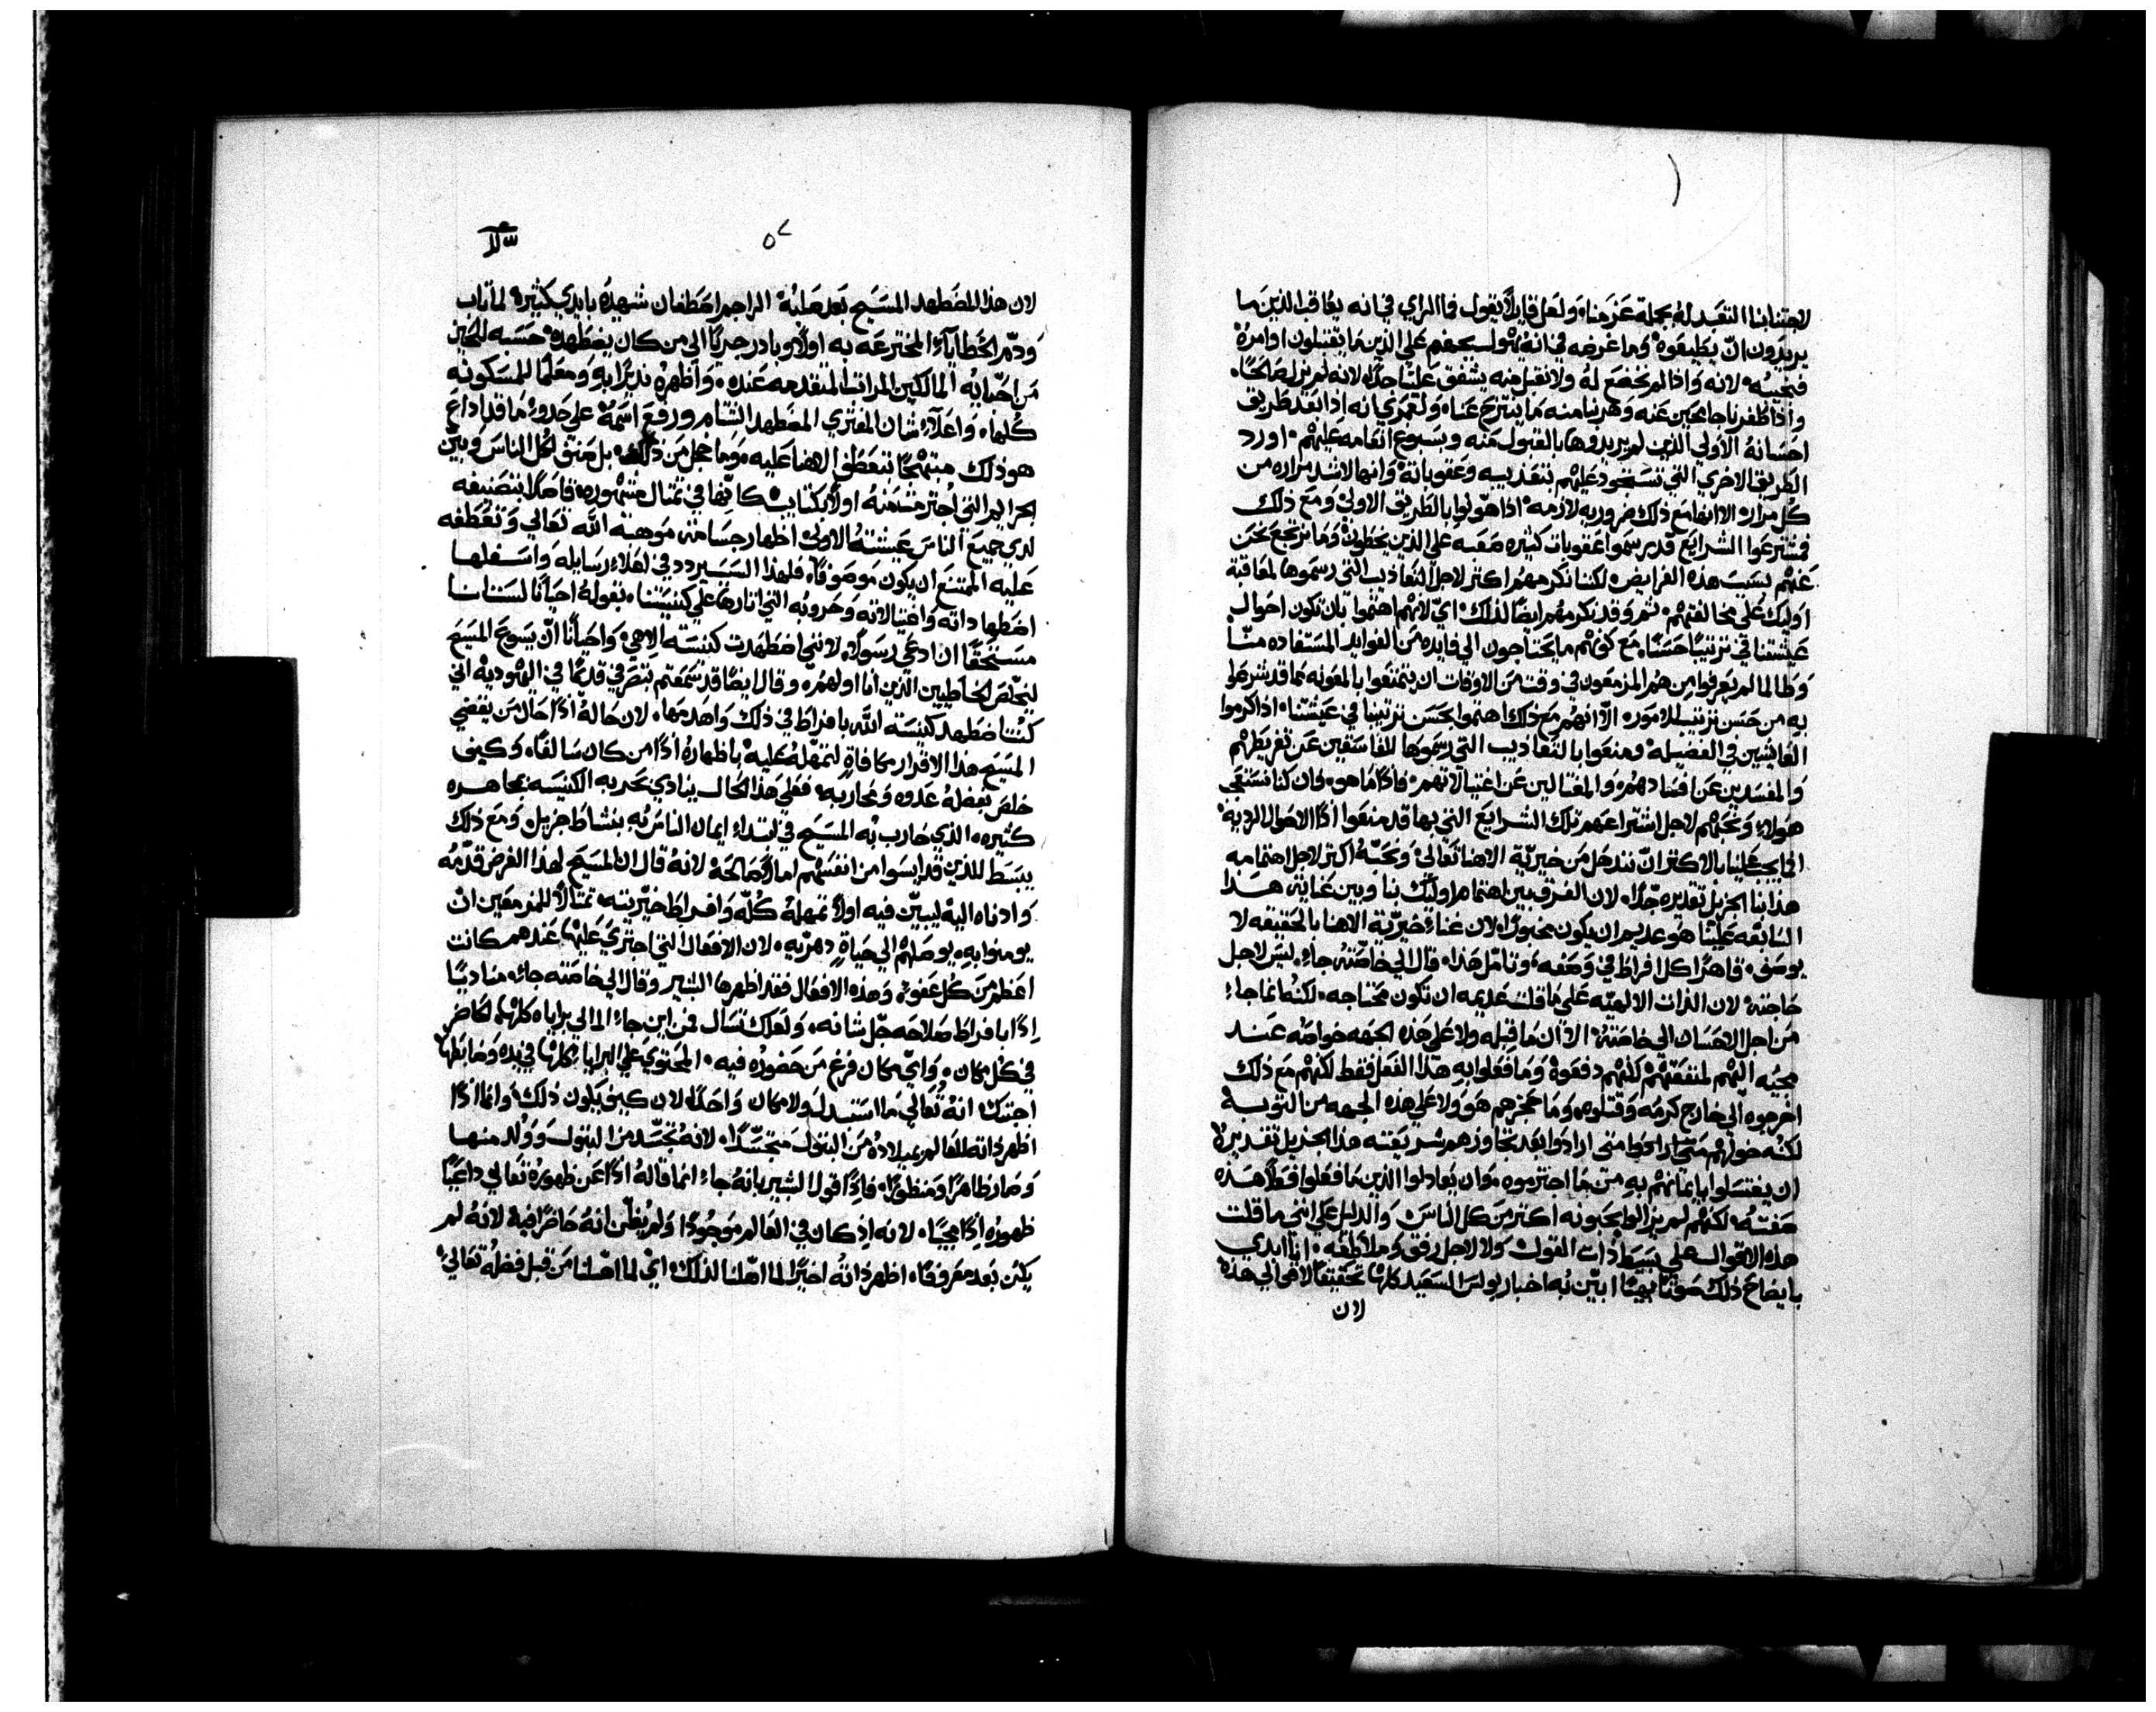 لاجتنابنا التعبد له بجملة عزمنا، ولعل قايلاً يقول فما الراي في انه يعاقب الذين ما
يريدون ان يطيعوه وما غرضه في انه يتهول بسخط علي الذين ما يقتبلون اوامره
فنجيبه لانه واذا لم نخضع له ولا نقبل منه يشفق علينا جداً لانه لم يزل صالحًا،
واذا ظفرنا جامحين عنه وهربنا منه ما ينتزح عنا، ولعمري انه اذا بعد طريق
احسانه الاولي الذين لم يريدوها بالقبول منه وبسبوغ انعامه عليهم، اورد
الطريق الاخري التي تستحوذ عليهم بتعذيبه وعقوباته وانها لاشد مراره من
كل مراره الا انها مع ذلك ضروريه لازمه اذا هولوا بالطريق الاولي ومع ذلك
فمشترعوا الشرايع قد رسموا عقوبات كثيره صعبه علي الذين يخطون وما نرتجع نحن
عنهم بسبب هذه الفرايض لكننا نكرمهم اكثر لاجل التعاذيب التي رسموها لمعاقبة
اوليك علي مخالفتهم، ثم وقد نكرمهم ايضًا لذلك، اي لانهم اهتموا بان تكون احوال
عيشتنا في ترتيبًا حسنًا، مع كونهم ما يحتاجون الي فايده من الفوايد المستفاده منّا
وطالما لم يعرفوا من هم المزمعون في وقت من الاوقات ان يتمتعوا بالمعونه مما قد اشترطوا
به من حسن ترتيب للامور، الا انهم مع ذلك اهتموا بحسن ترتيبنا في عيشتنا، اذ اكرموا
العايشين في الفضيله ومنعوا بالتعاذيب التي رسموها للفاسقين عن تفريطهم
والمفسدين عن فسادهم، والمغتالين عن اغتيالاتهم، فاذًا ما هو، فان كنا نستعجب
هولاء ونحبهم لاجل اشتراعهم تلك الشرايع التي بها قد منعوا اذًا الاحوال الرديه
افما يجب علينا بالاكثر ان نندهل من خيرية الاهنا تعالي ونحبه اكثر لاجل اهتمامه
هذا بنا الجزيل تقديره جدًا، لان الفرق بين اهتمام اوليك بنا وبين عناية هذا
السابغه علينا هو عديم ان يكون محدودًا، لان غناء خيريّة الاهنا بالحقيقه لا
يوصف، قاهرًا كل افراط في وصفه، وتامل هذا، قال الي خاصّته جاء، ليس لاجل
حاجته لان الذات الالهيّه علي ما قلت عديمه ان تكون محتاجه، لكنه انما جاء
من اجل الاحسان الي خاصته، الا ان ما قبله ولا علي هذه الجهه خواصه عند
مجيه اليهم لمنفعتهم لكنهم دفعوه وما فعلوا به هذا الفعل فقط لكنهم مع ذلك
اخرجوه الي خارج كرمه وقتلوه، وما عجزهم هو ولا علي هذه الجهه من التوبه
لكنه خولهم متي ارادوا متي ارادوا بعد تجاوزهم شريعته هذا الجزيل تقديره
ان يغتسلوا بايمانهم به من ما اجترموه، وان يعادلوا الذين ما فعلوا فعلاً هذه
صفته، لكنهم لم يزالوا يحبونه اكثر من كل الناس والدليل علي انني ما قلت
هذه الاقوال علي بسيط ذات القول ولا لاجل رفق وملاطفه، انا ابدي
بايضاح ذلك صوتًا بهيًا ابيّن به اخبار بولس السعيد كلها تحقيقًا لاقوالي هذه
لان
٥٧
لان هذا المضطهد المسيح بعد صلبه الراجم اصطفان شهيده بايدي كثيره لما تاب
وذمّ الخطايا المخترعه به اولاً وبادر جريًا الي من كان يضطهده حسبه للحين
من احبايه المالكين المراتب المتقدمه عنده، واظهره نذيرًا به ومعلمًا للمسكونه
كلها، واعلاء شان المفتري المضطهد الشام ورفع اسمه علي حدو ما قد اذاع
هو ذلك مبتهجًا بتعطف الاهنا عليه، وما خجل من ذلك بل حقق لكل الناس وبيّن
الجرايم التي اجترمت منه اولاً بكتابه كانها في تمثال مشهوره، فاهلاً بتصنيفه
لدي جميع الناس عيشته الاولي اظهار جسامة موهبة الله تعالي وتعطفه
عليه الممتنع ان يكون موصوفًا، فلهذا السبب يردد في اعلاء رسايله واسفلها
اضطهاداته واغتيالاته وحروبه التي اثارها علي كنيستنا، بقوله احيانًا لست انا
مستحقًا ان ادعي رسولاً، لانني اضطهدت كنيسة الاهي، واحيانًا ان يسوع المسيح
ليخلص الخاطيين الذين انا اولهم، وقال ايضًا قد سمعتم تصرفي قديمًا في اليهوديه اني
كنت اضطهد كنيسة الله بافراط في ذلك واهدمها، لان حاله اذًا حال من يقضي
المسيح هذا الاقرار مكافاةٍ لتمهله عليه باظهاره اذًا من كان سالفًا، وكيف
خلص بفضله عدوه ومحاربه، فعلي هذا الحال ينادي بحربه الكنيسه بمجاهره
كثيره الذي حارب به المسيح في ابتداء ايمان الناس به بنشاط جزيل، ومع ذلك
يبسط للذين قد ايسوا من انفسهم امالاً صالحه لانه قال ان المسيح لهذا الغرض قدّمه
وادناه اليه ليبيّن فيه اولاً تمهله كلّه وافراط خيريته تمثالاً للمزمعين ان
يومنوا به، يوصلهم الي حياةٍ دهريّه، لان الافعال التي اجتري عليها عندهم كانت
اعظم من كل عفو، وهذه الافعال فقد اظهرها البشير وقال الي خاصته جاء، مناديًا
اذًا بافراط صلاحه جلّ شانه، ولعلك تسال فمن اين جاء المالي براياه كلها الحاضر
في كل مكان، واي مكان فرغ من حضوره فيه، المحتوي علي البرايا كلها في يده وضابطها
اجبتك انه تعالي ما استبدل ولا مكان واحدًا، لان كيف يكون ذلك وانما اذًا
اظهر ذاته للعالم بميلاده من البتول متجسّدًا، لانه تجسّد من البتول وولد منها
وصار ظاهرًا ومنظورًا، فاذًا قول البشير بانه جاء انما قاله اذًا عن ظهوره تعالي داعيًا
ظهوره اذًا مجيًا، لانه اذ كان في العالم موجودًا ولم يظن انه حاضرًا فيه لانه لم
يكن بعد معروفًا، اظهر ذاته اخيرًا لما اهلنا لذلك، اي لما اهلنا من قبل فضله تعالي